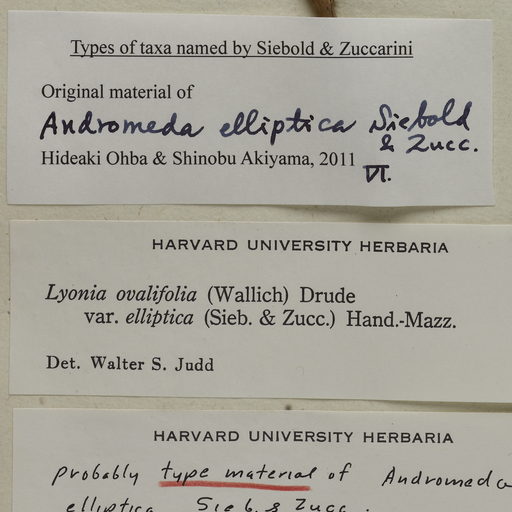 Types of taxa named by Siebold & Zuccarini
Original material of
Andromeda elliptica Siebold
& Zucc.
Hideaki Ohba & Shinobu Akiyama, 2011
VI.
HARVARD UNIVERSITY HERBARIA
Lyonia ovalifolia (Wallich) Drude
var. elliptica (Sieb. & Zucc.) Hand.-Mazz.
Det. Walter S. Judd
HARVARD UNIVERSITY HERBARIA
probably type material of Andromeda
elliptica Sieb. & Zucc.